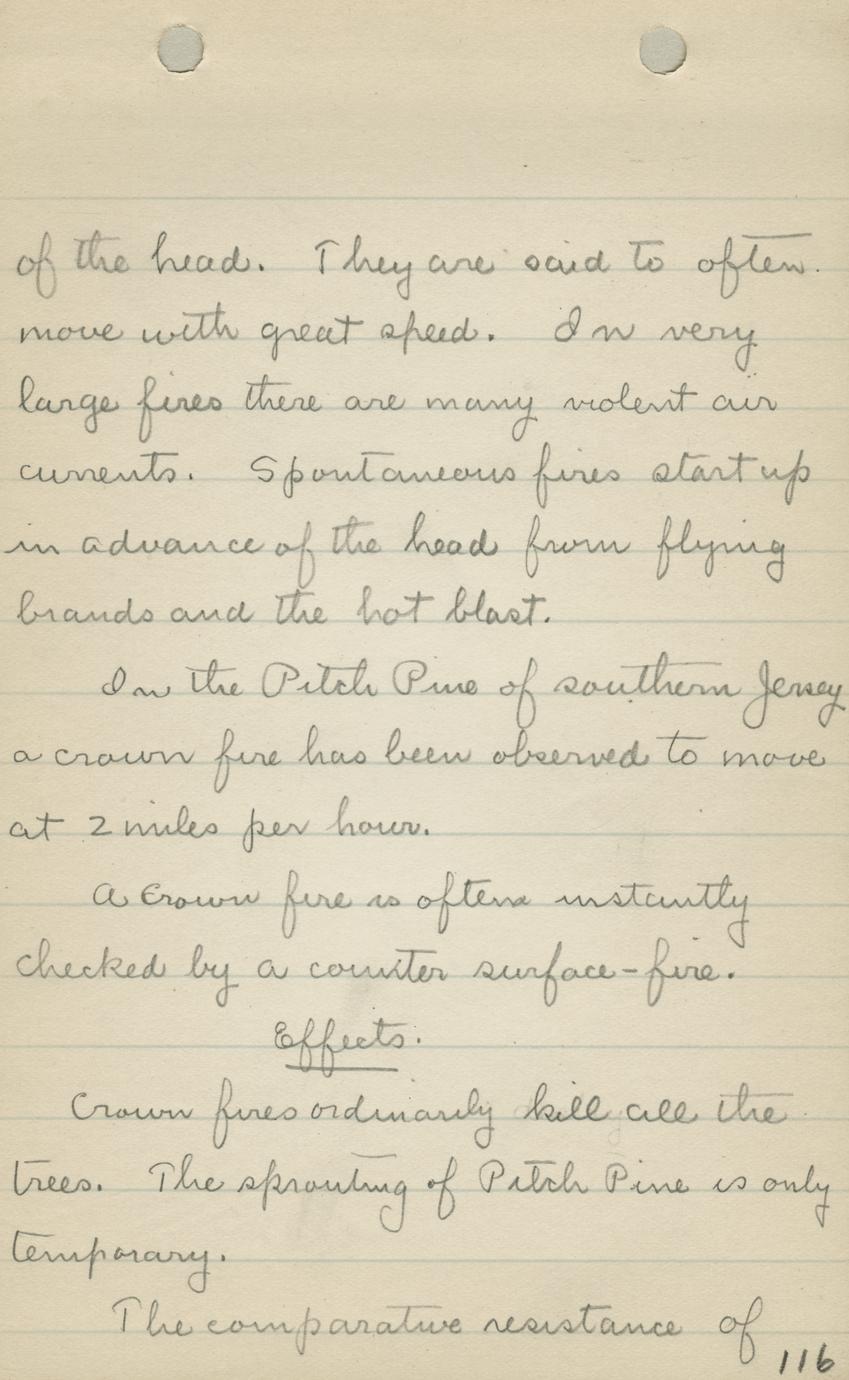 of the head. They are said to often
move with great speed. In very
large fires there are many violent air
currents. Spontaneous fires start up
in advance of the head from flying
brands and the hot blast.
In the Pitch Pine of southern Jersey
a crown fire has been observed to move
at 2 miles per hour.
A Crown fire is often instantly
checked by a counter surface-fire.
Effects.
Crown fires ordinarily kill all the
trees. The sprouting of Pitch Pine is only
temporary.
The comparative resistance of
116